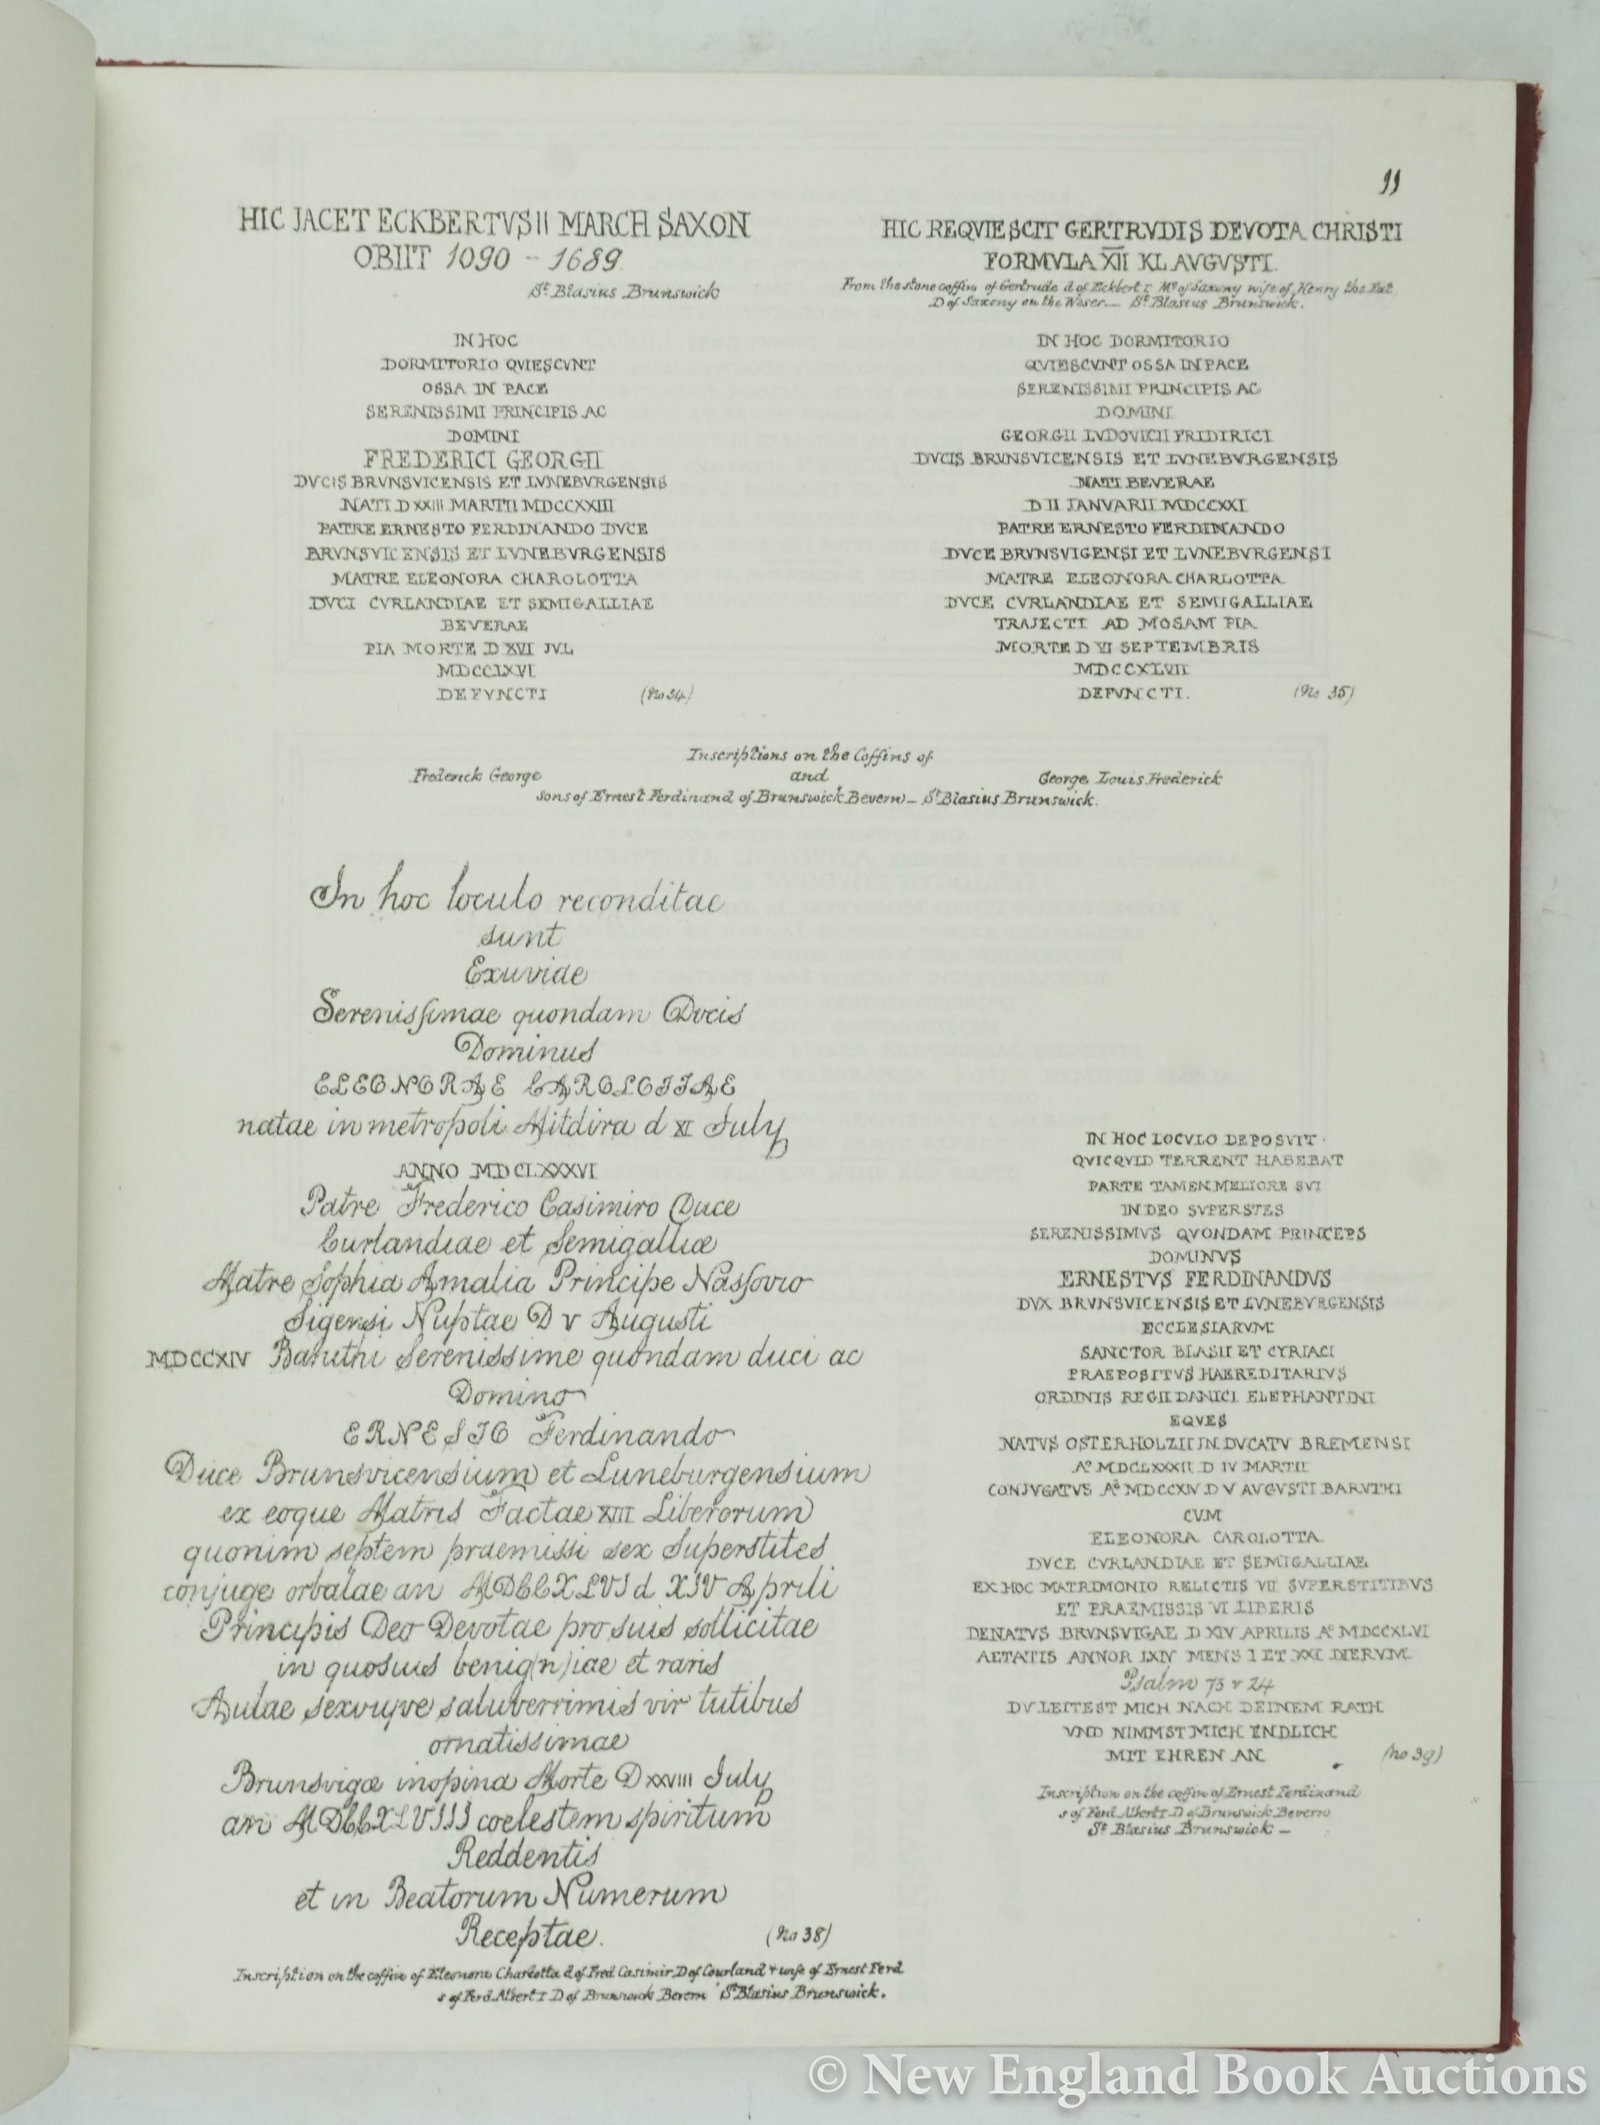 99
HIC JACET ECKBERTVS II MARCH SAXON
OBIIT 1090 - 1689.
St Blasius Brunswick
HIC REQVIESCIT GERTRVDIS DEVOTA CHRISTI
FORMVLA XII KL AVGVSTI.
From the stone coffin of Gertrude d. of Eckbert I Ms of Saxony wife of Henry the Fat
D of Saxony on the Weser — St Blasius Brunswick.
IN HOC
DORMITORIO QVIESCVNT
OSSA IN PACE
SERENISSIMI PRINCIPIS AC
DOMINI
FREDERICI GEORGII
DVCIS BRVNSVICENSIS ET LVNEBVRGENSIS
NATI D XXIII MARTII MDCCXXIII
PATRE ERNESTO FERDINANDO DVCE
BRVNSVICENSIS ET LVNEBVRGENSIS
MATRE ELEONORA CHAROLOTTA
DVCI CVRLANDIAE ET SEMIGALLIAE
BEVERAE
PIA MORTE D XVI JVL
MDCCLXVI
DEFVNCTI (No 34)
IN HOC DORMITORIO
QVIESCVNT OSSA IN PACE
SERENISSIMI PRINCIPIS AC
DOMINI
GEORGII LVDOVICII FRIDIRICI
DVCIS BRVNSVICENSIS ET LVNEBVRGENSIS
NATI BEVERAE
D II JANVARII MDCCXXI
PATRE ERNESTO FERDINANDO
DVCE BRVNSVIGENSI ET LVNEBVRGENSI
MATRE ELEONORA CHARLOTTA
DVCE CVRLANDIAE ET SEMIGALLIAE
TRAJECTI AD MOSAM PIA
MORTE D VI SEPTEMBRIS
MDCCXLVII
DEFVNCTI. (No 35)
Inscriptions on the Coffins of
Frederick George and George Louis Frederick
sons of Ernest Ferdinand of Brunswick Bevern — St Blasius Brunswick.
In hoc loculo reconditae
sunt
Exuviae
Serenissimae quondam Ducis
Dominus
ELEONORAE CAROLOTTAE
natae in metropoli Mitdira d XI July
ANNO MDCLXXXVI
Patre Frederico Casimiro Duce
Curlandiae et Semigalliæ
Matre Sophia Amalia Principe Nassovio
Sigensi Nuptae D V Augusti
MDCCXIV Baruthi Serenissime quondam duci ac
Domino
ERNESTO Ferdinando
Duce Brunsvicensium et Luneburgensium
ex eoque Matris Factae XIII Liberorum
quonim septem praemissi sex Superstites
conjuge orbatae an MDCCXLVI d XIV Aprili
Principis Deo Devotae pro suis sollicitae
in quosuis benig(n)iae et raris
Aulae sexvuyve saluberrimis vir tutibus
ornatissimae
Brunsvigæ inopina Morte D XXVIII July
an MDCCXLVIII coelestem spiritum
Reddentis
et in Beatorum Numerum
Receptae. (No 38)
Inscription on the coffin of Eleonora Charlotta d of Fred Casimir D of Courland + wife of Ernest Ferd
s of Ferd. Albert I D of Brunswick Bevern St Blasius Brunswick.
IN HOC LOCVLO DEPOSVIT
QVICQVID TERRENT HABEBAT
PARTE TAMEN MELIORE SVI
IN DEO SVPERSTES
SERENISSIMVS QVONDAM PRINCEPS
DOMINVS
ERNESTVS FERDINANDVS
DVX BRVNSVICENSIS ET LVNEBVRGENSIS
ECCLESIARVM
SANCTOR BLASII ET CYRIACI
PRAEPOSITVS HAEREDITARIVS
ORDINIS REGII DANICI ELEPHANTINI
EQVES
NATVS OSTERHOLZII IN DVCATV BREMENSI
Ao MDCLXXXII D IV MARTII
CONJVGATVS Ao MDCCXIV D V AVGVSTI BARVTHI
CVM
ELEONORA CAROLOTTA
DVCE CVRLANDIAE ET SEMIGALLIAE
EX HOC MATRIMONIO RELICTIS VII SVPERSTITIBVS
ET PRAEMISSIS VI LIBERIS
DENATVS BRVNSVIGAE D XIV APRILIS Ao MDCCXLVI
AETATIS ANNOR LXIV MENS I ET XXI DIERVM.
Psalm 73 v 24
DV LEITEST MICH NACH DEINEM RATH
VND NIMMST MICH ENDLICH
MIT EHREN AN. (No 39)
Inscription on the coffin of Ernest Ferdinand
s of Ferd. Albert I D of Brunswick Bevern
St Blasius Brunswick —
© New England Book Auctions